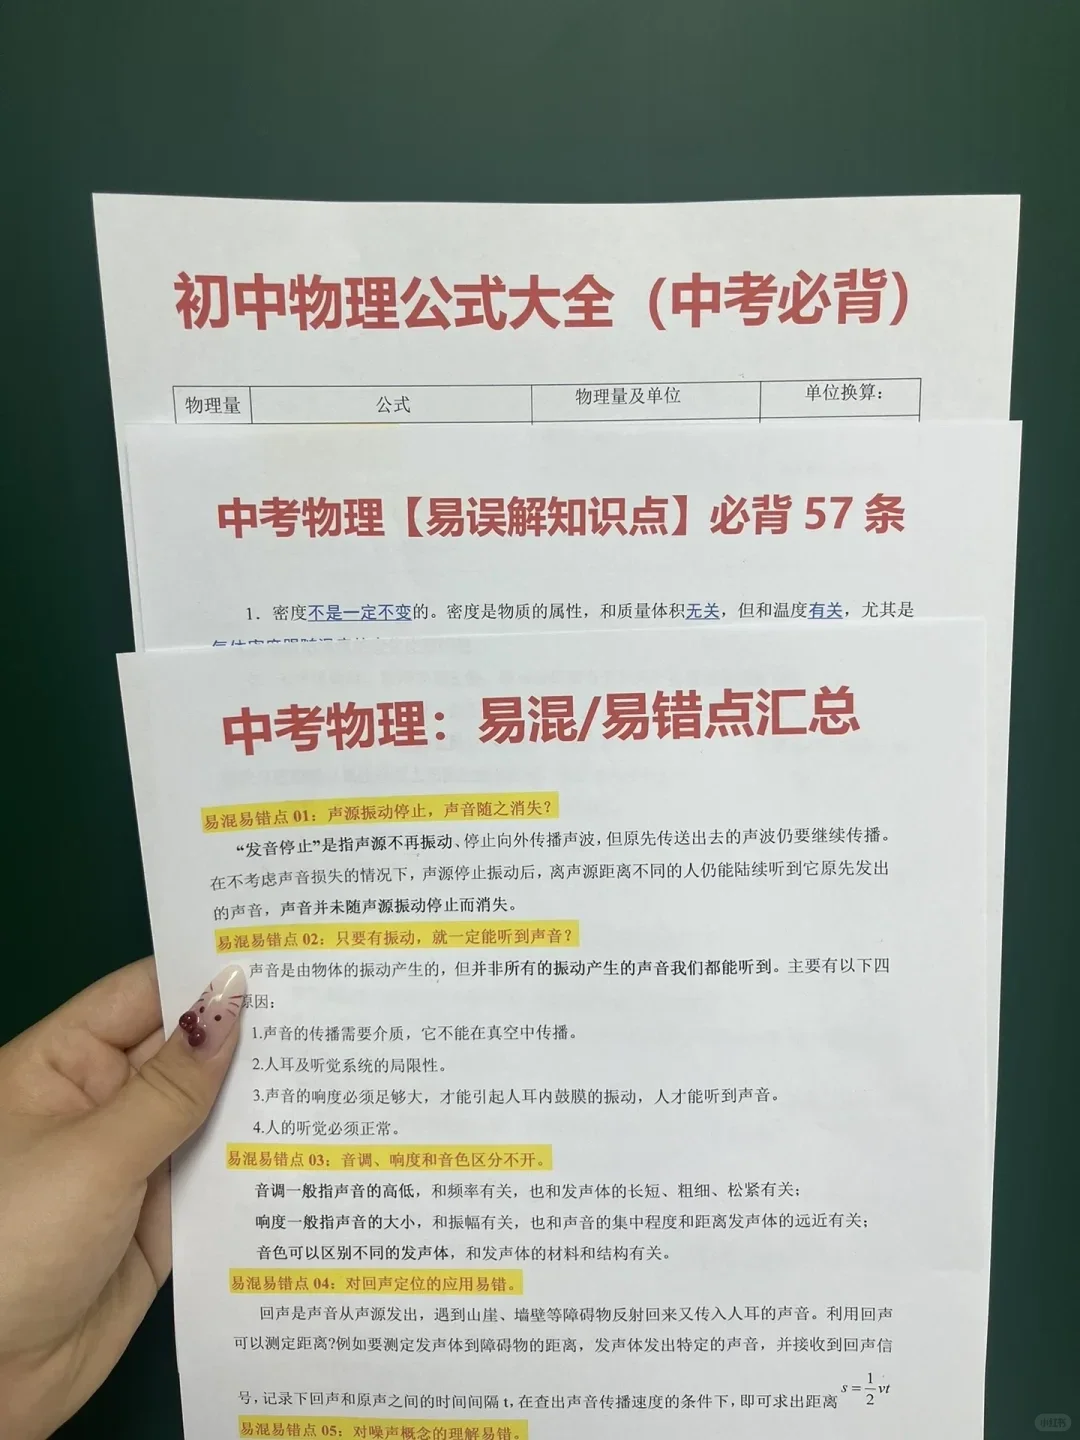 初中物理公式大全（中考必背）
物理量 公式 物理量及单位 单位换算：
中考物理【易误解知识点】必背 57 条
1．密度不是一定不变的。密度是物质的属性，和质量体积无关，但和温度有关，尤其是
中考物理：易混/易错点汇总
易混易错点 01：声源振动停止，声音随之消失？
“发音停止”是指声源不再振动、停止向外传播声波，但原先传送出去的声波仍要继续传播。
在不考虑声音损失的情况下，声源停止振动后，离声源距离不同的人仍能陆续听到它原先发出
的声音，声音并未随声源振动停止而消失。
易混易错点 02：只要有振动，就一定能听到声音？
声音是由物体的振动产生的，但并非所有的振动产生的声音我们都能听到。主要有以下四
原因：
1.声音的传播需要介质，它不能在真空中传播。
2.人耳及听觉系统的局限性。
3.声音的响度必须足够大，才能引起人耳内鼓膜的振动，人才能听到声音。
4.人的听觉必须正常。
易混易错点 03：音调、响度和音色区分不开。
音调一般指声音的高低，和频率有关，也和发声体的长短、粗细、松紧有关；
响度一般指声音的大小，和振幅有关，也和声音的集中程度和距离发声体的远近有关；
音色可以区别不同的发声体，和发声体的材料和结构有关。
易混易错点 04：对回声定位的应用易错。
回声是声音从声源发出，遇到山崖、墙壁等障碍物反射回来又传入人耳的声音。利用回声
可以测定距离?例如要测定发声体到障碍物的距离，发声体发出特定的声音，并接收到回声信
号，记录下回声和原声之间的时间间隔 t，在查出声音传播速度的条件下，即可求出距离 s=1/2vt
易混易错点 05：对噪声概念的理解易错。
小红书